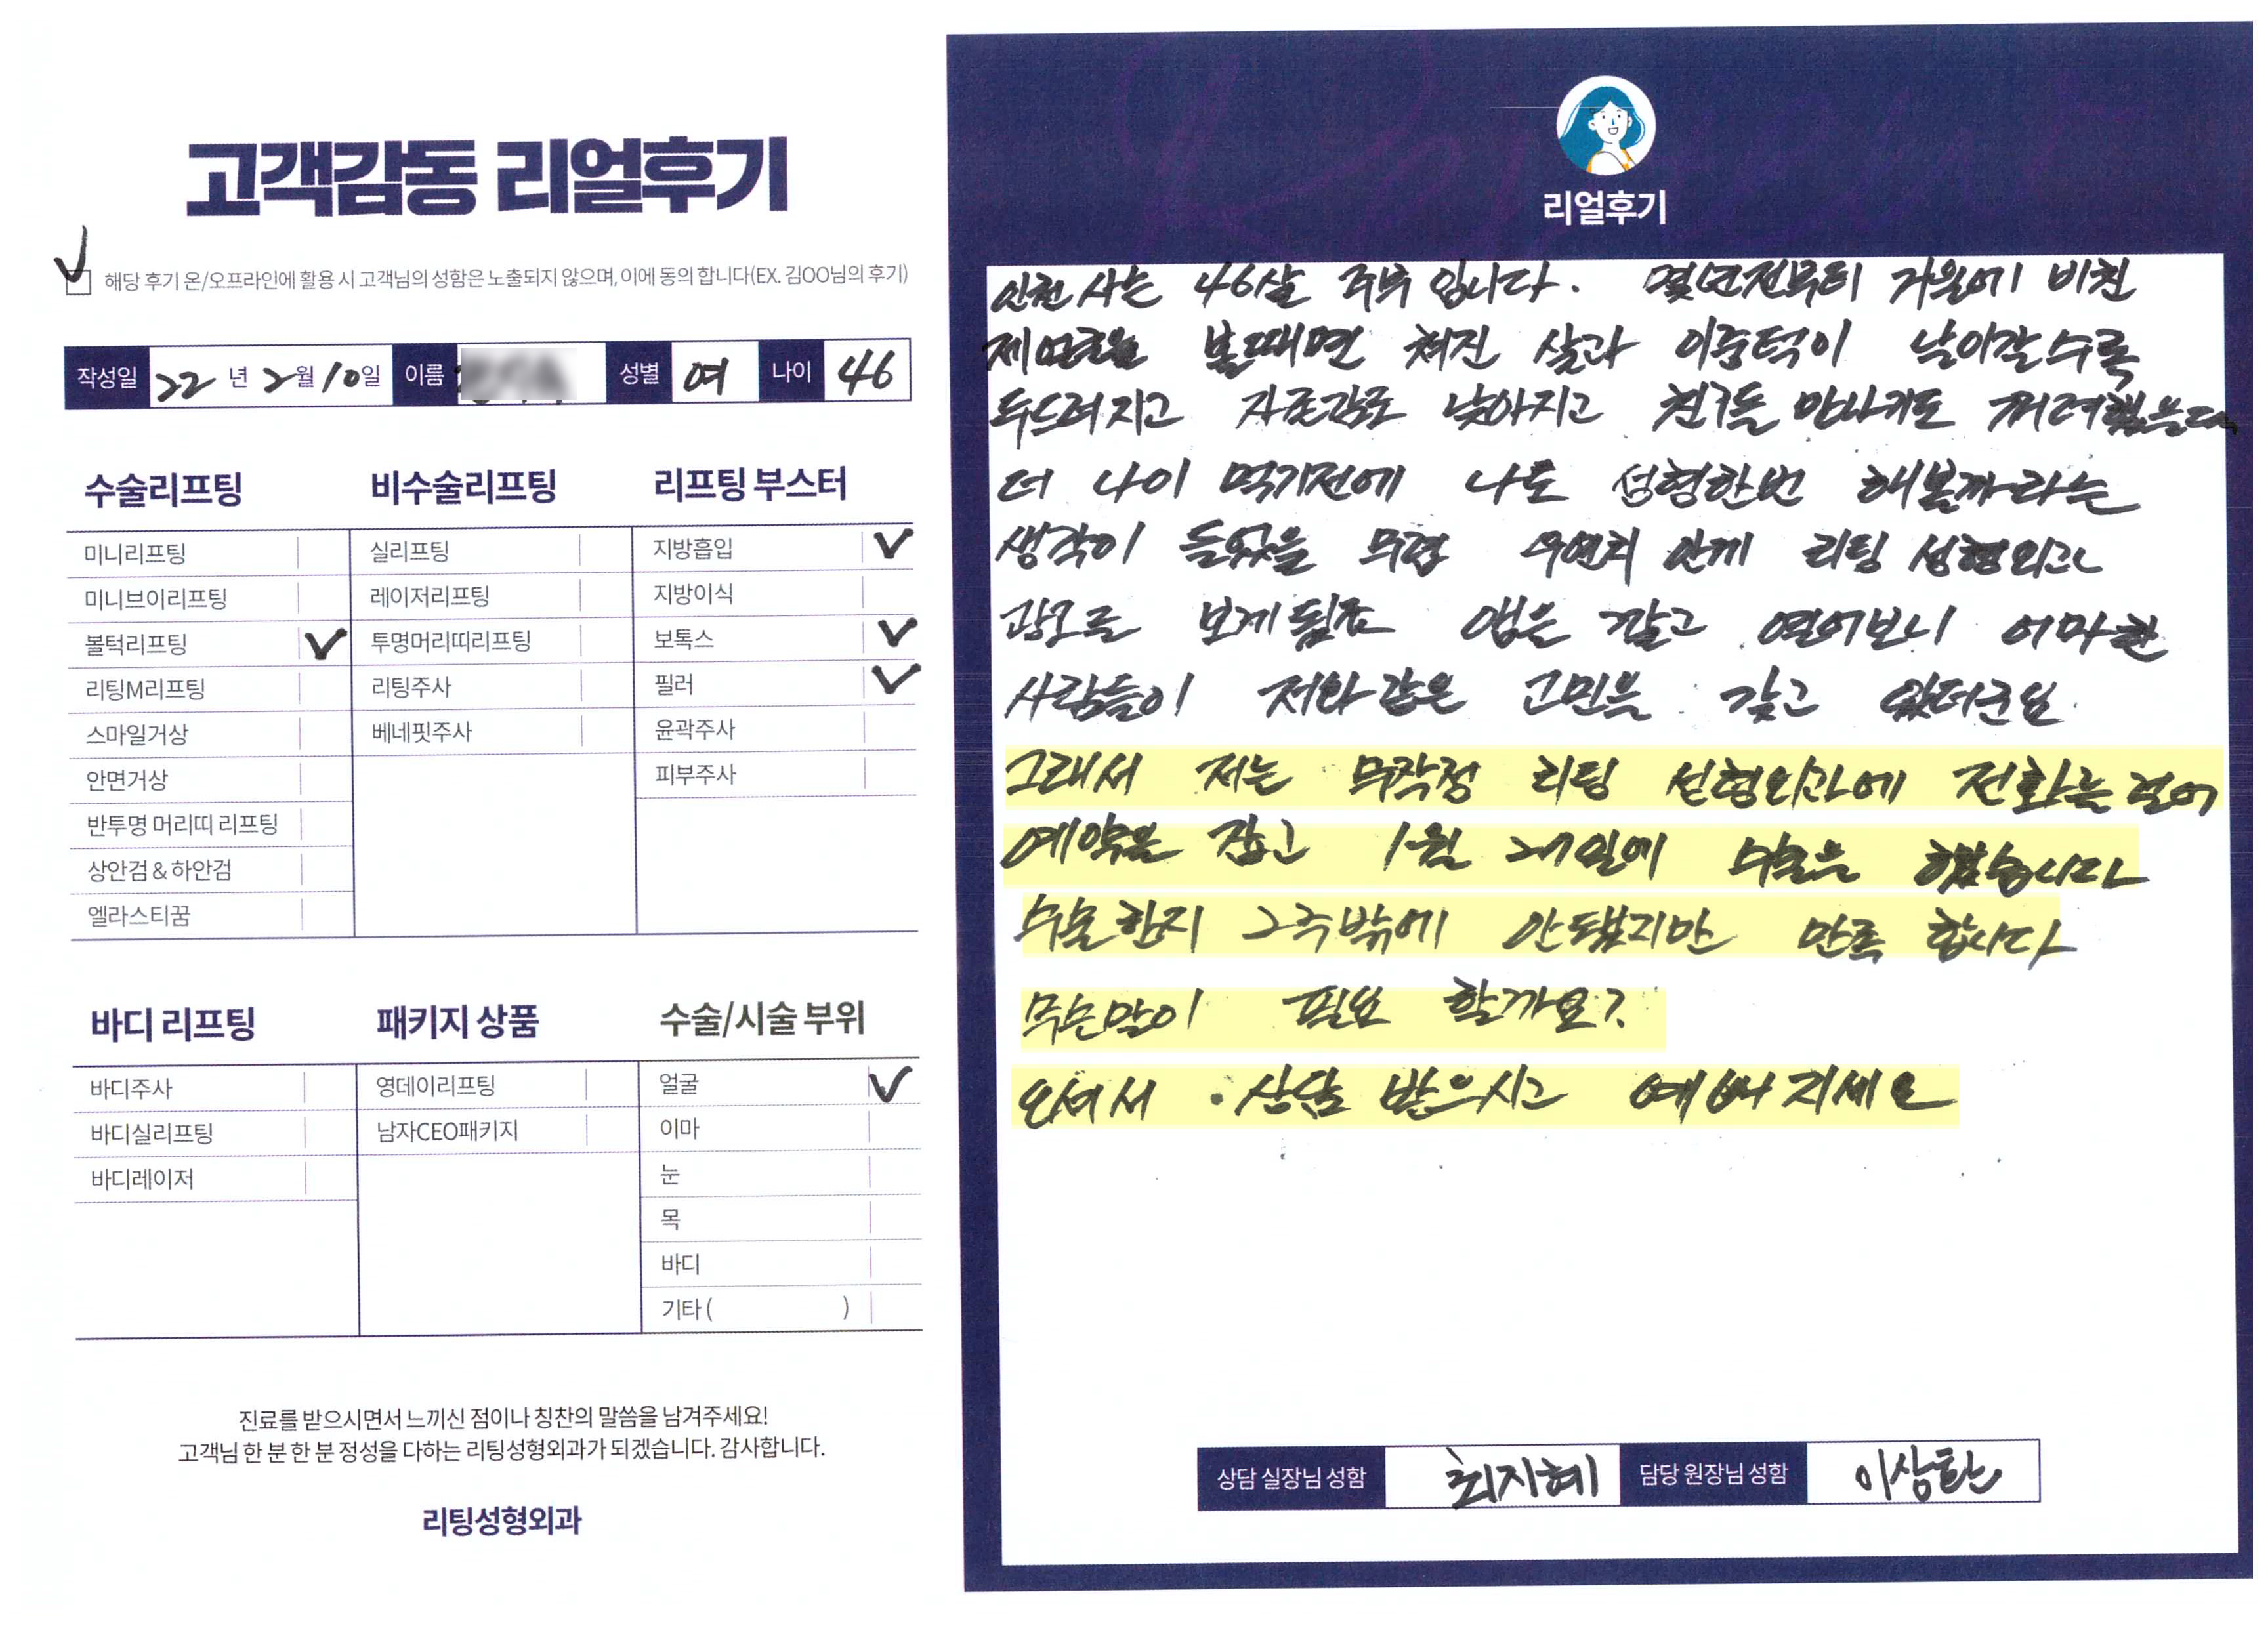 고객감동 리얼후기
해당 후기 온/오프라인에 활용 시 고객님의 성함은 노출되지 않으며, 이에 동의 합니다(EX. 김OO님의 후기)
작성일 22년 2월 10일 이름 성별 여 나이 46
수술리프팅
미니리프팅
미니브이리프팅
볼턱리프팅
리팅M리프팅
스마일거상
안면거상
반투명 머리띠 리프팅
상안검 & 하안검
엘라스티꿈
비수술리프팅
실리프팅
레이저리프팅
투명머리띠리프팅
리팅주사
베네핏주사
리프팅 부스터
지방흡입
지방이식
보톡스
필러
윤곽주사
피부주사
바디 리프팅
바디주사
바디실리프팅
바디레이저
패키지 상품
영데이리프팅
남자CEO패키지
수술/시술 부위
얼굴
이마
눈
목
바디
기타 ( )
진료를 받으시면서 느끼신 점이나 칭찬의 말씀을 남겨주세요!
고객님 한 분 한 분 정성을 다하는 리팅성형외과가 되겠습니다. 감사합니다.
리팅성형외과
리얼후기
인천 사는 46살 주부 입니다. 몇년전부터 거울에 비친
제 얼굴을 볼때면 쳐진 살과 이중턱이 날이갈수록
두드러지고 자존감도 낮아지고 친구들 만나기도 꺼려했는데
더 나이 먹기전에 나도 성형한번 해볼까라는
생각이 들었을 무렵 우연히 리팅 성형외과
광고를 보게됬죠 앱을 깔고 열어보니 어마한
사람들이 저와 같은 고민을 갖고 있더군요.
그래서 저는 무작정 리팅 성형외과에 전화를 걸어
예약을 잡고 1월 27일에 수술을 했습니다
수술한지 2주밖에 안됐지만 만족 합니다
무슨말이 필요 할까요?
오셔서 상담 받으시고 예뻐지세요
상담 실장님 성함 최지혜 담당 원장님 성함 이상환